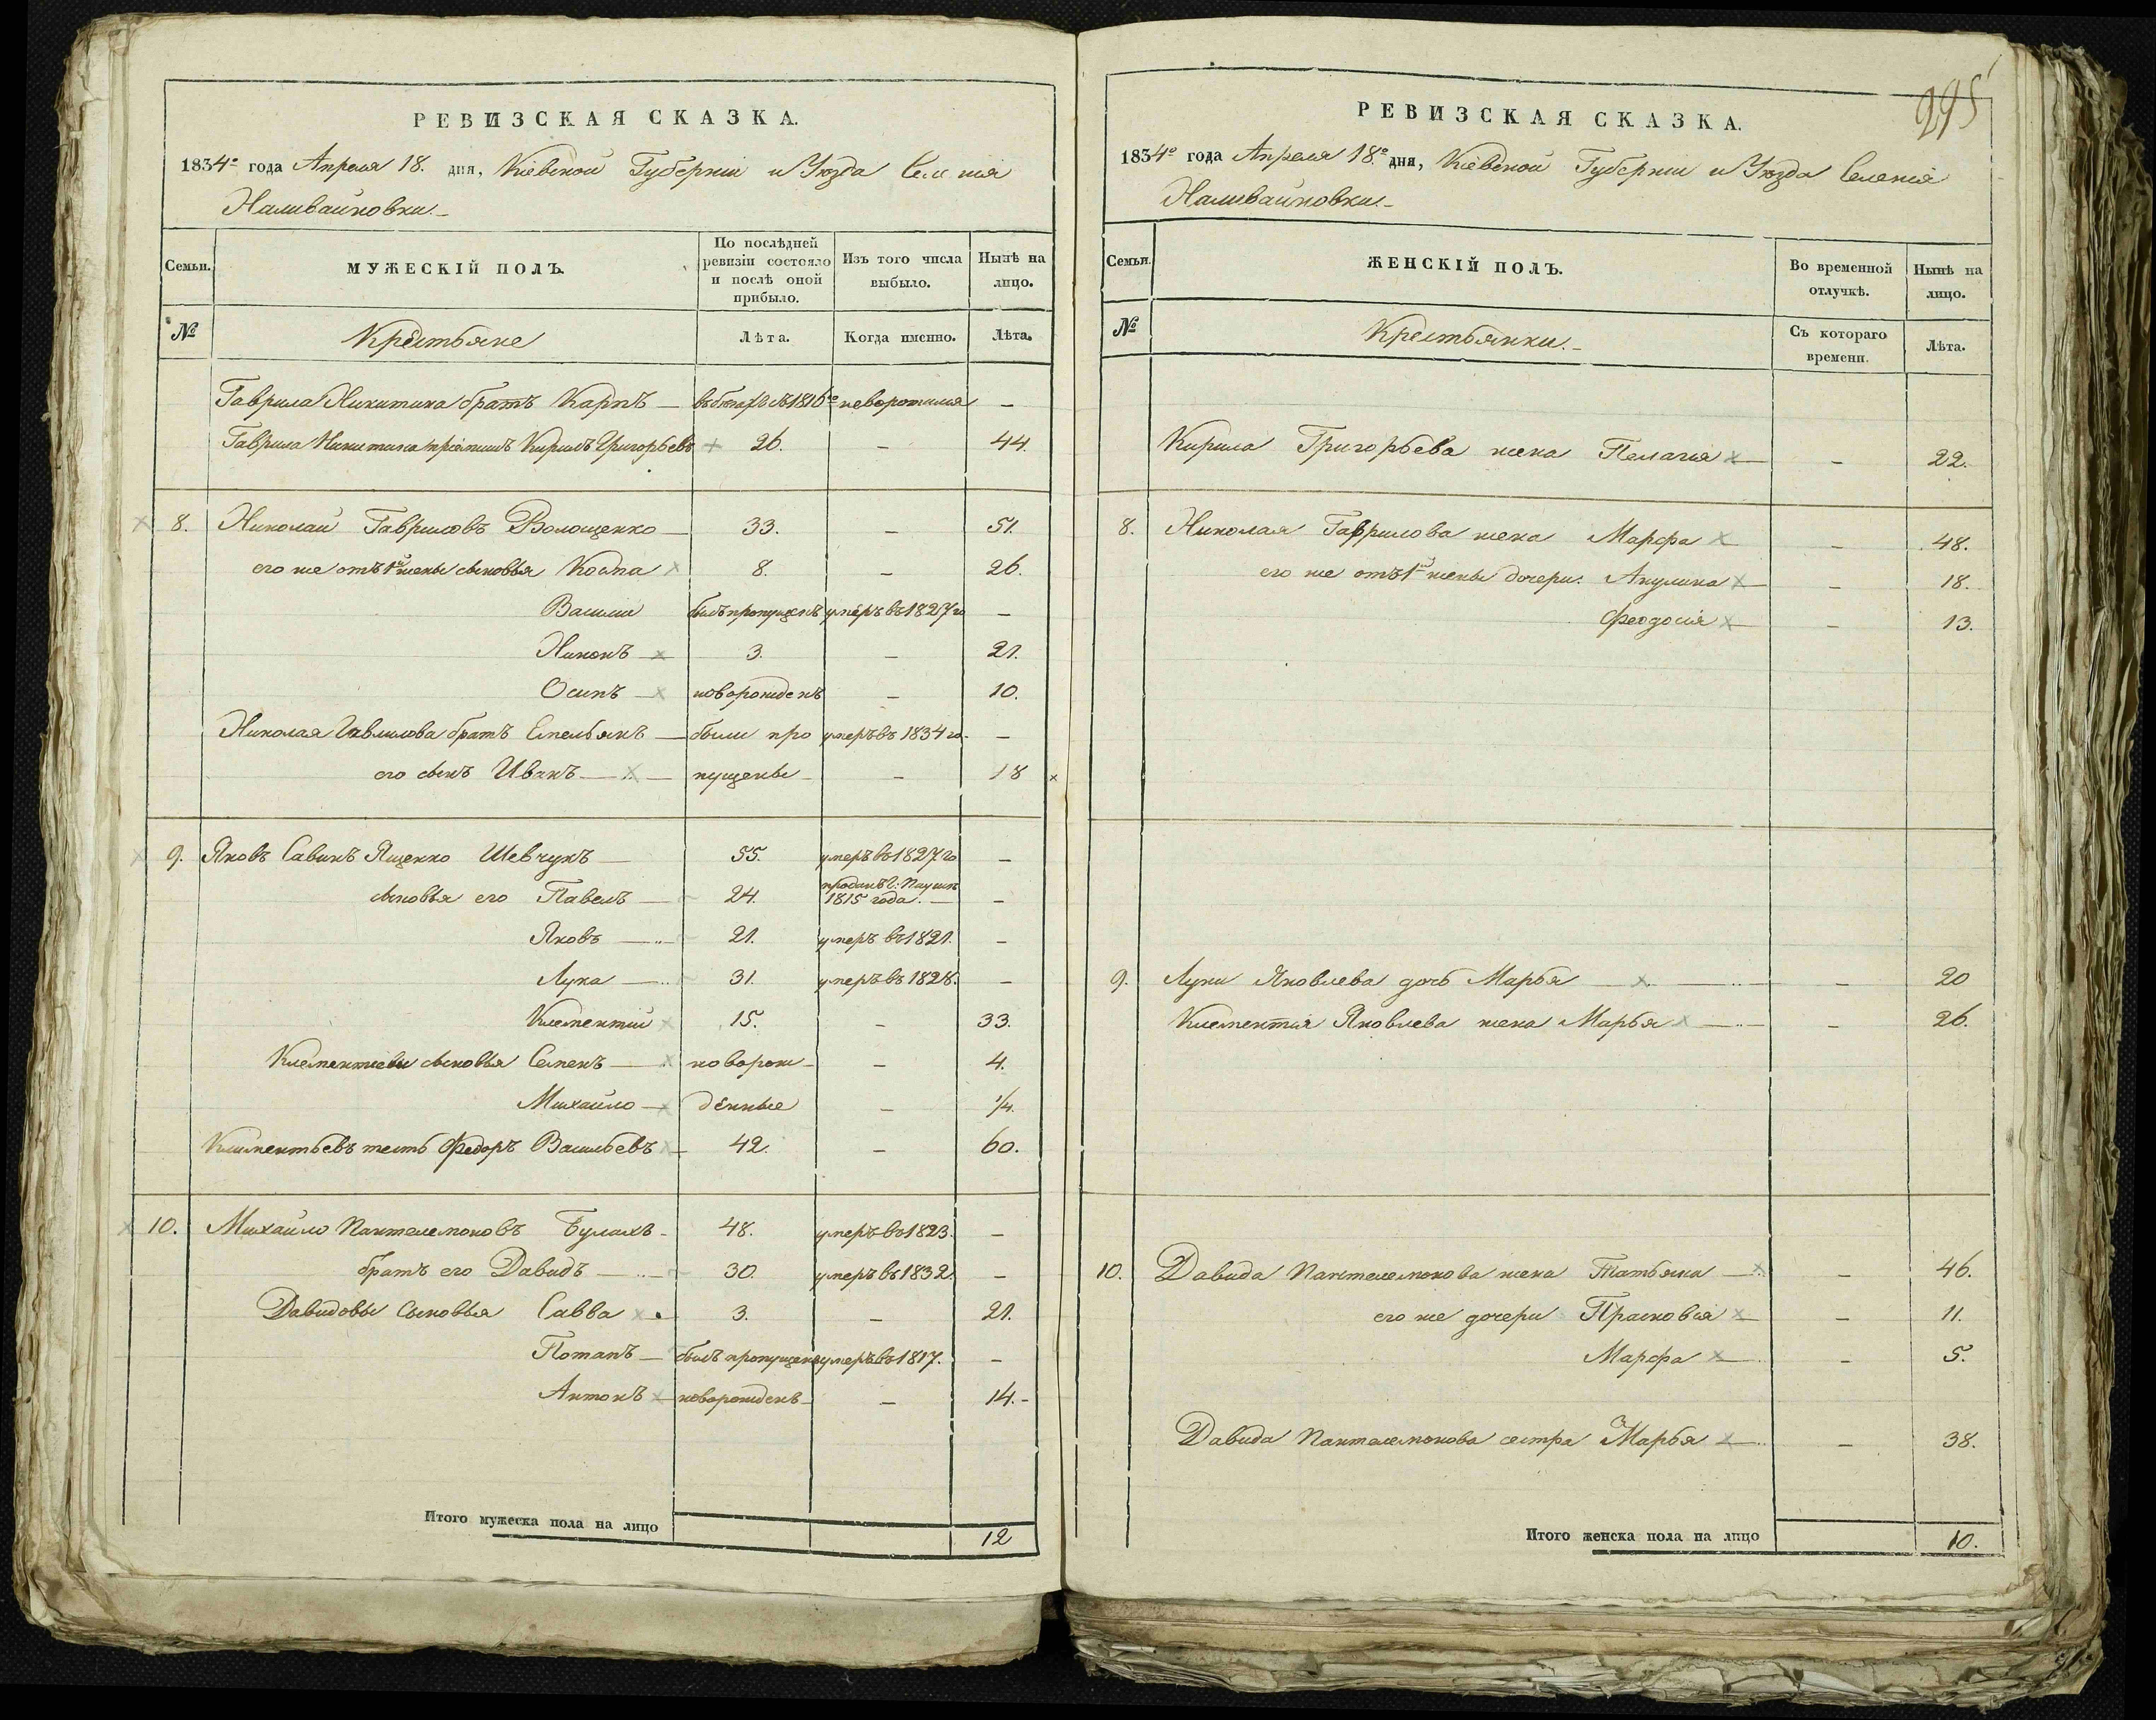 РЕВИЗСКАЯ СКАЗКА.
1834го года Апреля 18. дня, Кіевской Губерніи и Уѣзда Селенія
Наливайковки.
Семьи.
МУЖЕСКІЙ ПОЛЪ.
По послѣдней ревизіи состояло и послѣ оной прибыло.
Изъ того числа выбыло.
Нынѣ на лицо.
№
Крестьяне
Лѣта.
Когда именно.
Лѣта.
Гаврила Никитина братъ Карпъ — въ бѣгахъ съ 1816го неворотился —
Гаврила Никитина пріемышъ Кирилъ Григорьевъ 26. — 44.
8. Николай Гавриловъ Волощенко — 33. — 51.
его же отъ 1й жены сыновья Козма 8. — 26.
Василій былъ пропущенъ умеръ въ 1827го —
Никонъ — 3. — 21.
Осипъ — новорожденъ — 10.
Николая Гаврилова братъ Емельянъ — были про умеръ въ 1834го —
его сынъ Иванъ — пущены — 18
9. Яковъ Савинъ Ященко Шевчукъ — 55. умеръ въ 1827го —
сыновья его Павелъ — 24. проданъ 1815 года. —
Яковъ — 21. умеръ въ 1821. —
Лука — 31. умеръ въ 1828. —
Клементій 15. — 33.
Клементіевы сыновья Семенъ — новорож — 4.
Михайло — денные — 1/4.
Климентьевъ тесть Федоръ Васильевъ — 42. — 60.
10. Михайло Пантелемоновъ Булахъ 48. умеръ въ 1823. —
братъ его Давидъ — 30. умеръ въ 1832. —
Давидовы сыновья Савва 3. — 21.
Потапъ — былъ пропущенъ умеръ въ 1817. —
Антонъ — новорожденъ — 14.
Итого мужеска пола на лицо 12
295
РЕВИЗСКАЯ СКАЗКА.
1834го года Апреля 18го дня, Кіевской Губерніи и Уѣзда Селенія
Наливайковки.
Семьи.
ЖЕНСКІЙ ПОЛЪ.
Во временной отлучкѣ.
Нынѣ на лицо.
№
Крестьянки.
Съ котораго времени.
Лѣта.
Кирила Григорьева жена Пелагія — — 22.
8. Николая Гаврилова жена Марфа — 48.
его же отъ 1й жены дочери. Акулина — — 18.
Феодосія — — 13.
9. Луки Яковлева дочь Марья — — 20
Клементія Яковлева жена Марья — — 26.
10. Давида Пантелемонова жена Татьяна — — 46.
его же дочери Прасковія — — 11.
Марфа — — 5.
Давида Пантелемонова сестра Марья — — 38.
Итого женска пола на лицо 10.